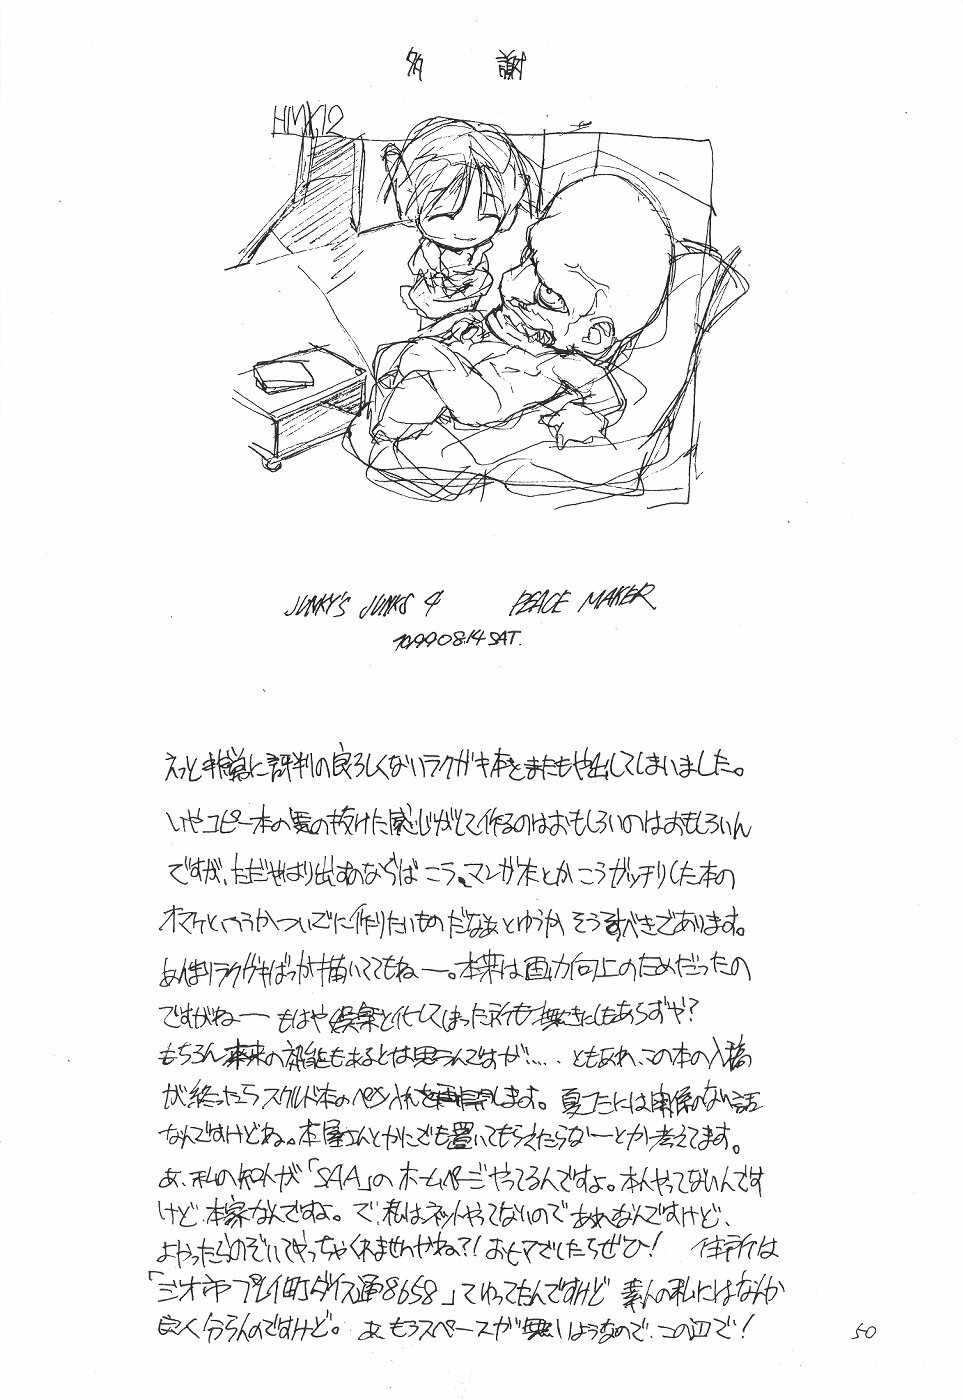 多 謝
HMX12
JUNKY'S JUNKS 4 PEACE MAKER
1999 08.14 SAT.
えっと非常に評判の良ろしくないラクガキ本をまたもや出してしまいました。
いやコピー本の気の抜けた感じがして作るのはおもしろいのはおもしろいん
ですが、ただやはり出すのならば こう、マンガ本とか こうガッチリした本の
オマケというかついでに作りたいものだなぁとゆうか そうすべきであります。
あんまりラクガキばっか描いててもねー。本来は画力向上のためだったの
ですがねー もはや娯楽と化してしまった所も無きにしもあらずや？
もちろん本来の効能もあるとは思うんですが‥‥ともあれ、この本の入稿
が終ったらスクルド本のペン入れを再開します。夏コミには関係のない話
なんですけどね。本屋さんとかにでも置いてもらえたらなーとか考えてます。
あ、私の知人が「SAA」のホームページやってるんですよ。本人やってないんです
けど 本家なんですよ。で、私はネットやってないので あれなんですけど、
よかったらのぞいてやっちゃくれませんかね？！おヒマでしたらぜひ！ 住所は
「ジオ市プレイ町ダイス通8658」ていってたんですけど 素人の私にはなんか
良く分らんのですけど。あ、もうスペースが無いようなので、この辺で！
50